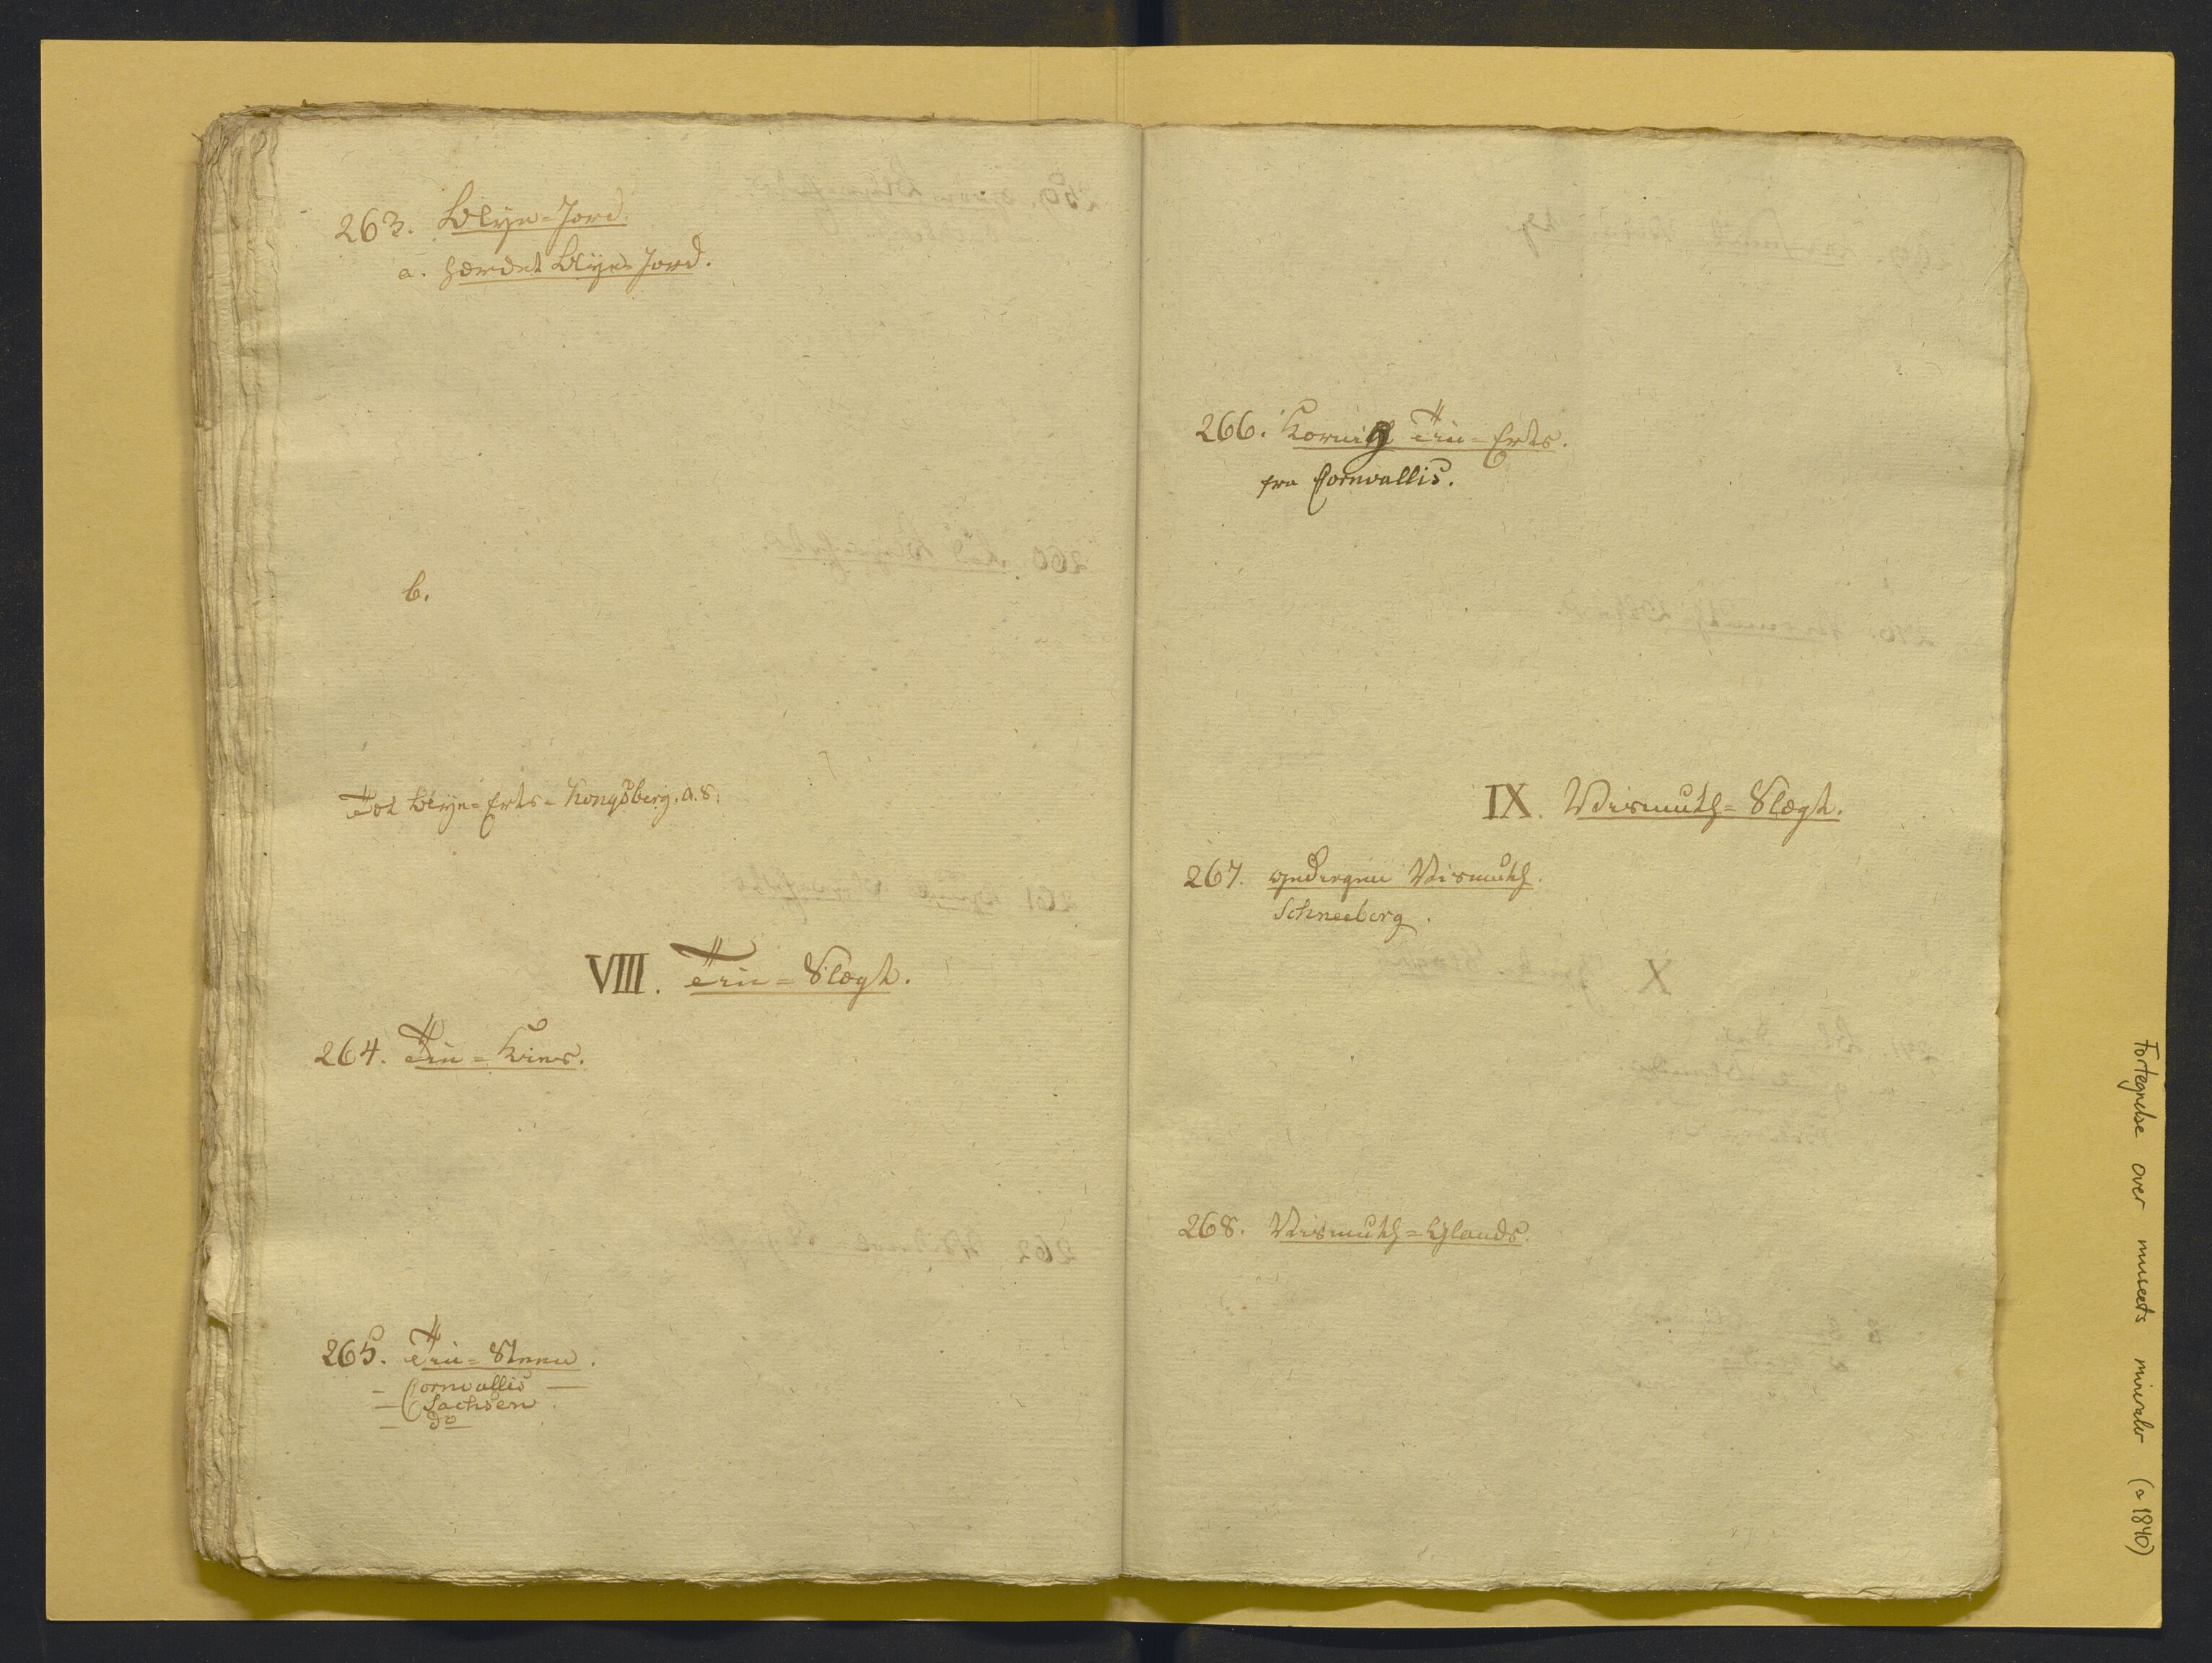 263. Blye-Jord.
a. hærdet Blye-Jord.
b.
Tæt Blye-Erts- Kongsberg. a.8.
VIII. Tin-Slægt.
264. Tin-Kies.
265. Tin-Steen.
- Cornvallis —
- Sachsen.
- do
266. Kornig Tin-Erts.
fra Cornvallis.
IX. Wismuth-Slægt.
267. gediegen Wismuth.
Schneeberg.
268. Wismuth-Glands.
Fortegnelse over museets mineraler (ca 1840)